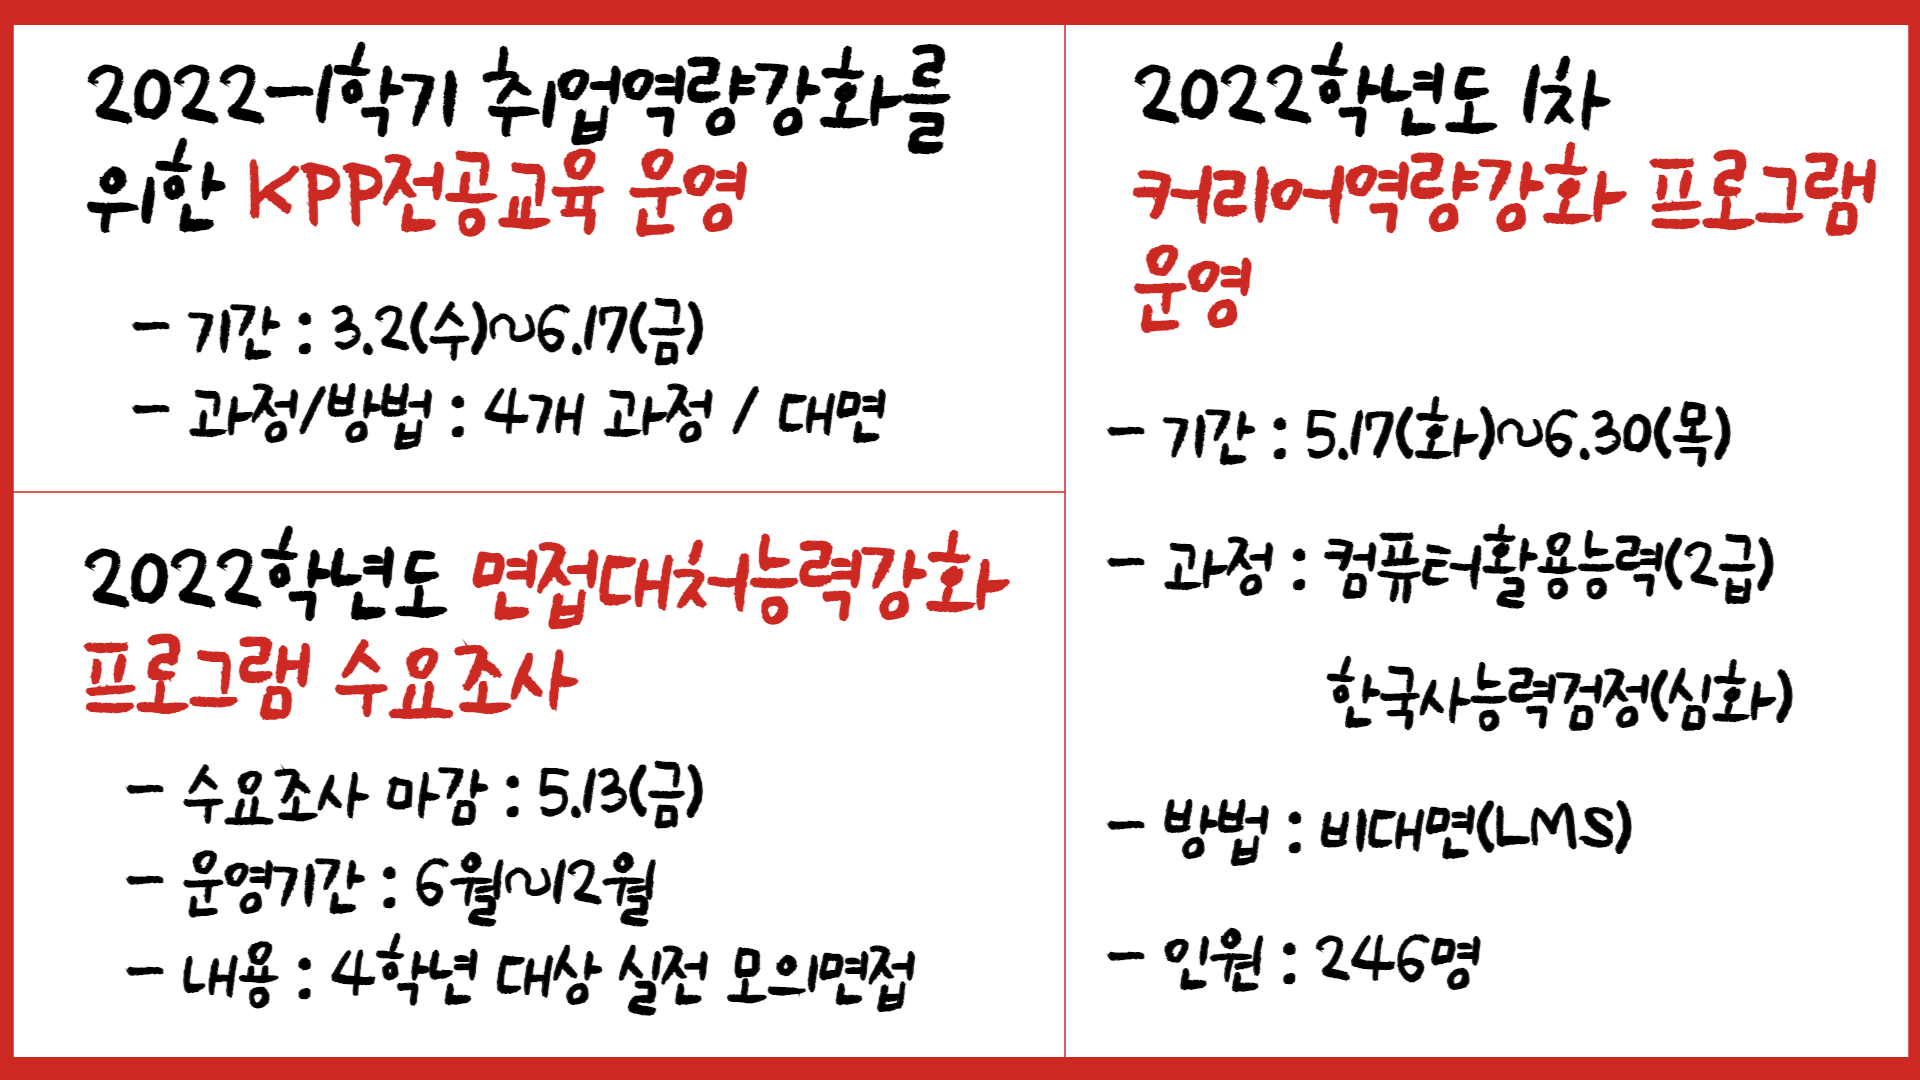 2022-1학기 취업역량강화를
위한 KPP전공교육 운영
- 기간 : 3.2(수)~6.17(금)
- 과정/방법 : 4개 과정 / 대면
2022학년도 면접대처능력강화
프로그램 수요조사
- 수요조사 마감 : 5.13(금)
- 운영기간 : 6월~12월
- 내용 : 4학년 대상 실전 모의면접
2022학년도 1차
커리어역량강화 프로그램
운영
- 기간 : 5.17(화)~6.30(목)
- 과정 : 컴퓨터활용능력(2급)
한국사능력검정(심화)
- 방법 : 비대면(LMS)
- 인원 : 246명